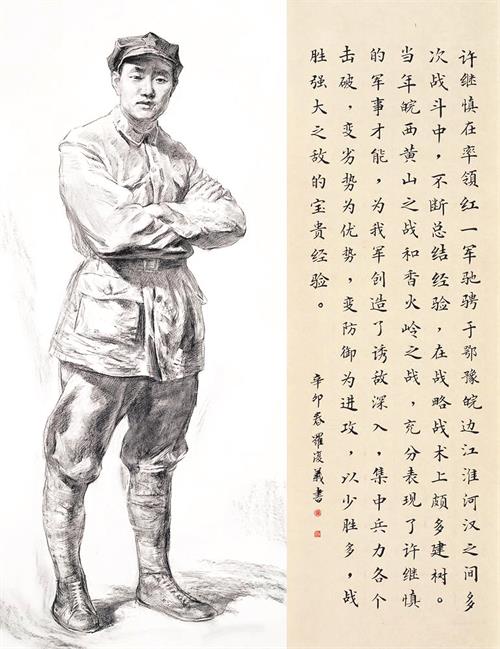 许继慎在率领红一军驰骋于鄂豫皖边江淮河汉之间多
次战斗中，不断总结经验，在战略战术上颇多建树。
当年皖西黄山之战和香火岭之战，充分表现了许继慎
的军事才能，为我军创造了诱敌深入，集中兵力各个
击破，变劣势为优势，变防御为进攻，以少胜多，战
胜强大之敌的宝贵经验。
辛卯春